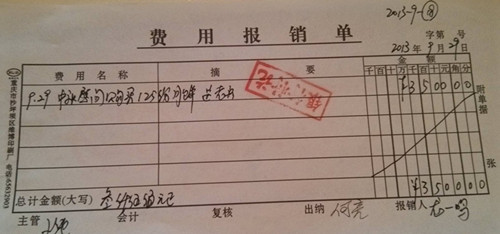 2013-9-⑧
费用报销单
字第 号
2013年9月29日
费用名称 摘要 金额
千百十万千百十元角分
9.29 中秋慰问 购买 125份月饼
¥350000
附单据 张
¥350000
总计金额(大写) 叁仟伍佰元正
主管 会计 复核 出纳 何亮 报销人
重庆市沙坪坝区维博印刷厂 电话:65632903